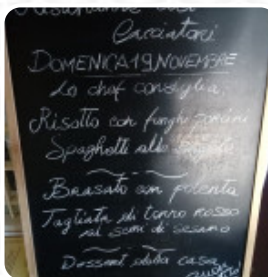 Cacciatori
DOMENICA 19 NOVEMBRE
Lo chef consiglia:
Risotto con funghi porcini
Spaghetti allo
Brasato con polenta
Tagliata di tonno rosso
ai semi di sesamo
Dessert della casa